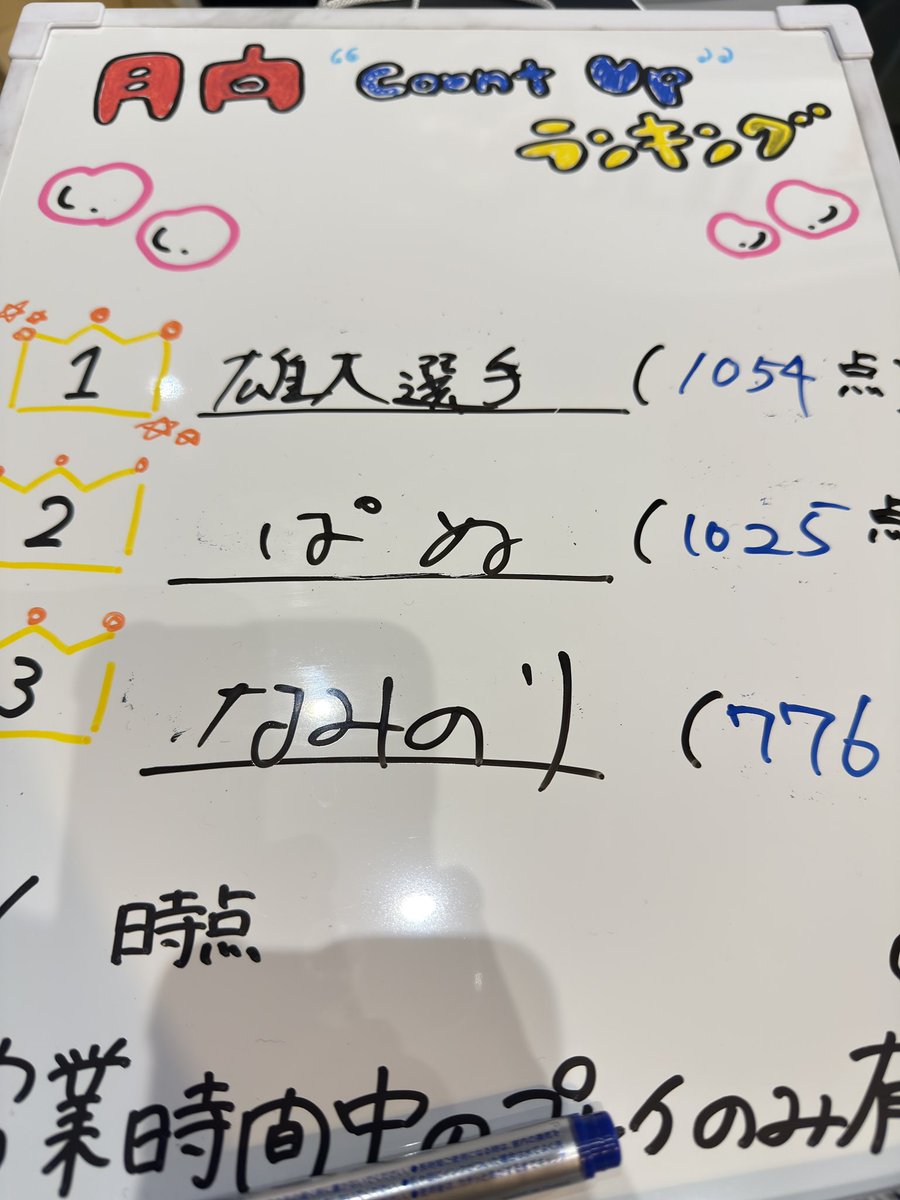 月向 “Count Up”
ランキング
1 雄大選手 (1054点)
2 ぱぬ (1025点
3 なみのり (776
/ 時点
営業時間中のプレイのみ有